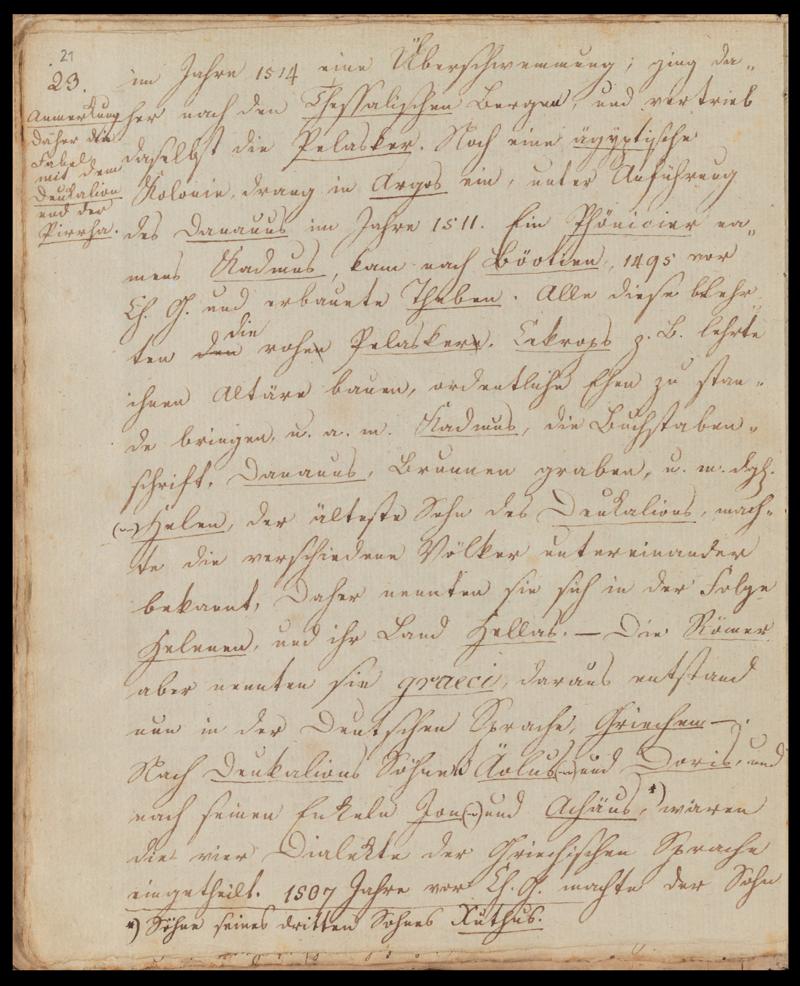 21
23.
Anmerkung
Daher die
Fabel
mit dem
Deukalion
und der
Pirrha.
im Jahre 1514 eine Überschwemmung; ging da„
her nach den Thessalischen Bergen, und vertrieb
daselbst die Pelasker. Noch eine ägyptische
Kolonie, drang in Argos ein, unter Anführung
des Danauus im Jahre 1511. Ein Phönicier na„
mens Kadmus, kam nach Böotien, 1495 vor
Ch. G. und erbauete Theben. Alle diese lehr„
die
ten den rohen Pelasker. Cekrops z. B. lehrte
ihnen Altäre bauen, ordentliche Ehen zu stan„
de bringen, u. a. m. Kadmus, die Buchstaben„
schrift, Danauus, Brunnen graben, u. m. dgl.
Helen, der älteste Sohn des Deukalions, mach„
te die verschiedene Völker untereinander
bekannt, Daher nennten sie sich in der Folge
Helenen, und ihr Land Hellas. — Die Römer
aber nennten sie graeci, daraus entstand
nun in der Deutschen Sprache, Griechen —.
Nach Deukalions Söhne Äolus und Doris, und
nach seinen Enkeln Jon und Achäus, *) waren
die vier Dialekte der Griechischen Sprache
eingetheilt. 1507 Jahre vor Ch. G. machte der Sohn
*) Söhne seines dritten Sohnes Xuthus.